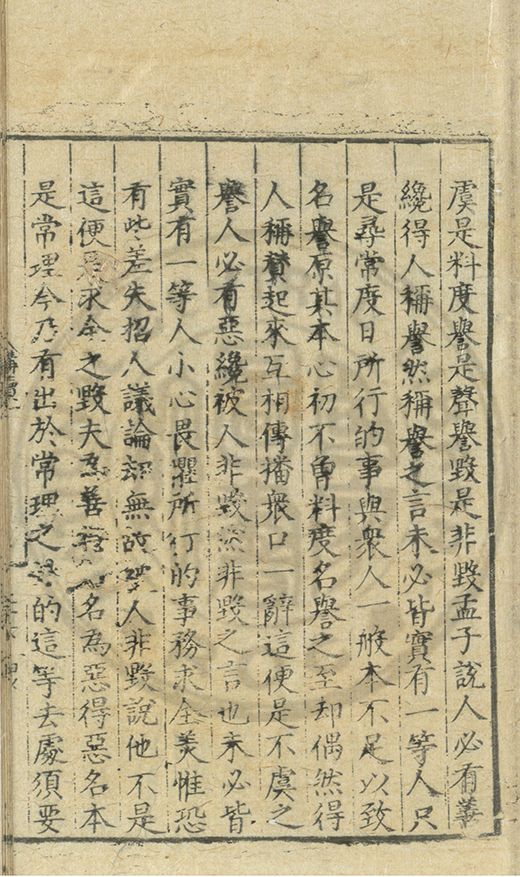 虞是料度譽是聲譽毀是非毀孟子說人必有善
纔得人稱譽然稱譽之言未必皆實有一等人只
是尋常度日所行的事與衆人一般本不足以致
名譽原其本心初不曾料度名譽之至却偶然得
人稱賛起來互相傳播衆口一辭這便是不虞之
譽人必有惡纔被人非毀然非毀之言也未必皆
實有一等人小心畏懼所行的事務求全美惟恐
有些差失招人議論却無故被人非毀說他不是
這便是求全之毀夫為善得名為惡得惡名本
是常理今乃有出於常理之的這等去處須要